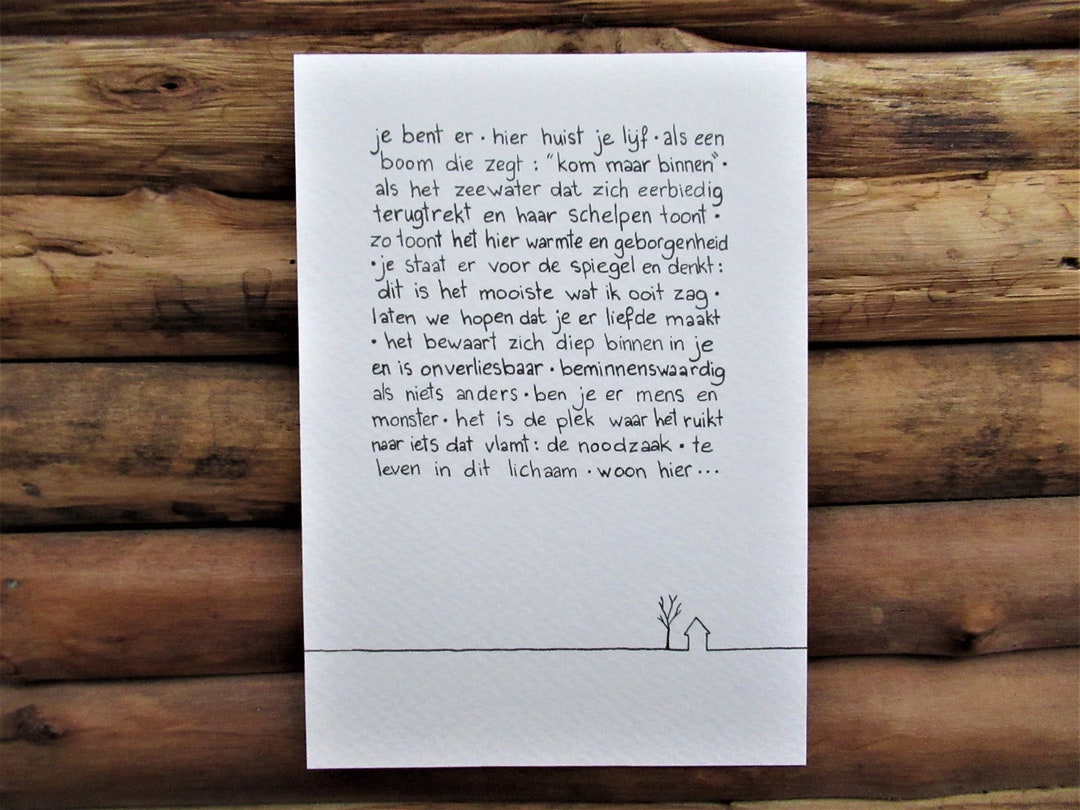 je bent er · hier huist je lijf · als een
boom die zegt : "kom maar binnen" ·
als het zeewater dat zich eerbiedig
terugtrekt en haar schelpen toont ·
zo toont het hier warmte en geborgenheid
· je staat er voor de spiegel en denkt :
dit is het mooiste wat ik ooit zag ·
laten we hopen dat je er liefde maakt
· het bewaart zich diep binnen in je
en is onverliesbaar · beminnenswaardig
als niets anders · ben je er mens en
monster · het is de plek waar het ruikt
naar iets dat vlamt : de noodzaak · te
leven in dit lichaam · woon hier ...